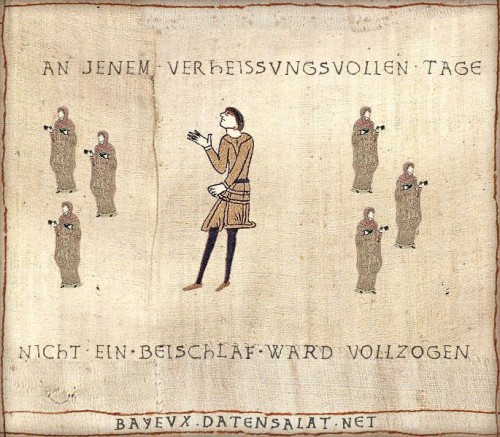 AN JENEM · VERHEISSVNGSVOLLEN · TAGE
NICHT · EIN · BEISCHLAF · WARD VOLLZOGEN
BAYEVX · DATENSALAT · NET